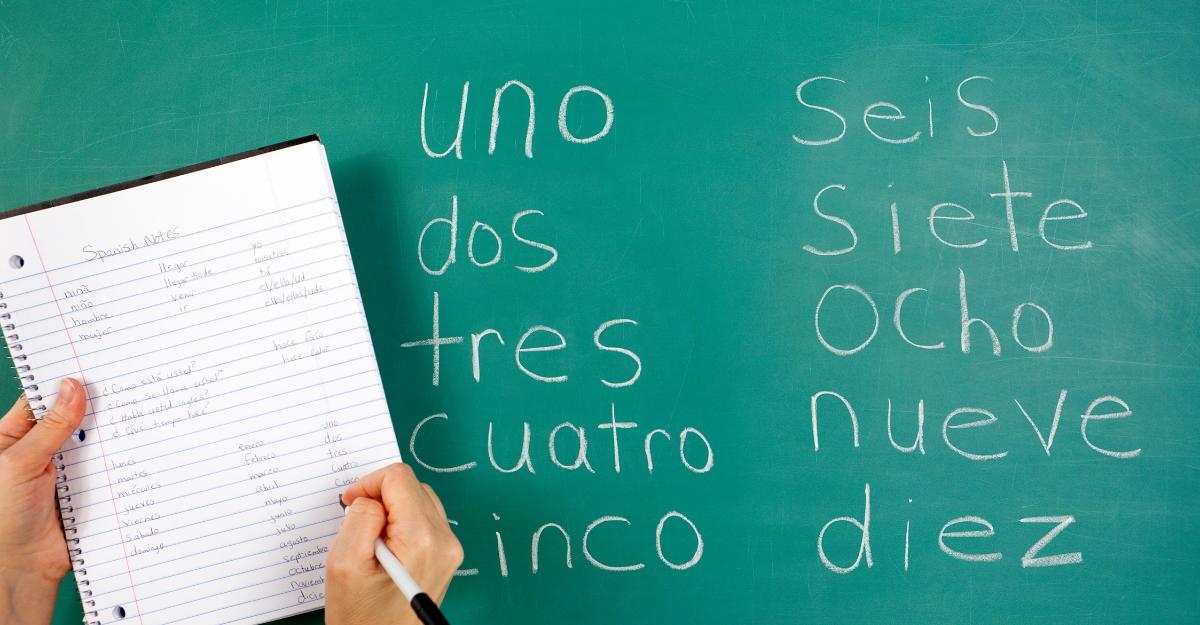 Spanish Notes
niña
niño
hombre
mujer
llegar
llegar tarde
venir
ir
yo
nosotros
tú
el/ella/ud
¿Como está usted?
¿Como se llama usted?
¿Habla usted ingles?
¿Qué tiempo hace?
hace frío
hace calor
lunes
martes
miércoles
jueves
viernes
sábado
domingo
enero
febrero
marzo
abril
mayo
junio
julio
agosto
septiembre
octubre
uno
dos
tres
cuatro
cinco
uno
dos
tres
cuatro
cinco
seis
siete
ocho
nueve
diez